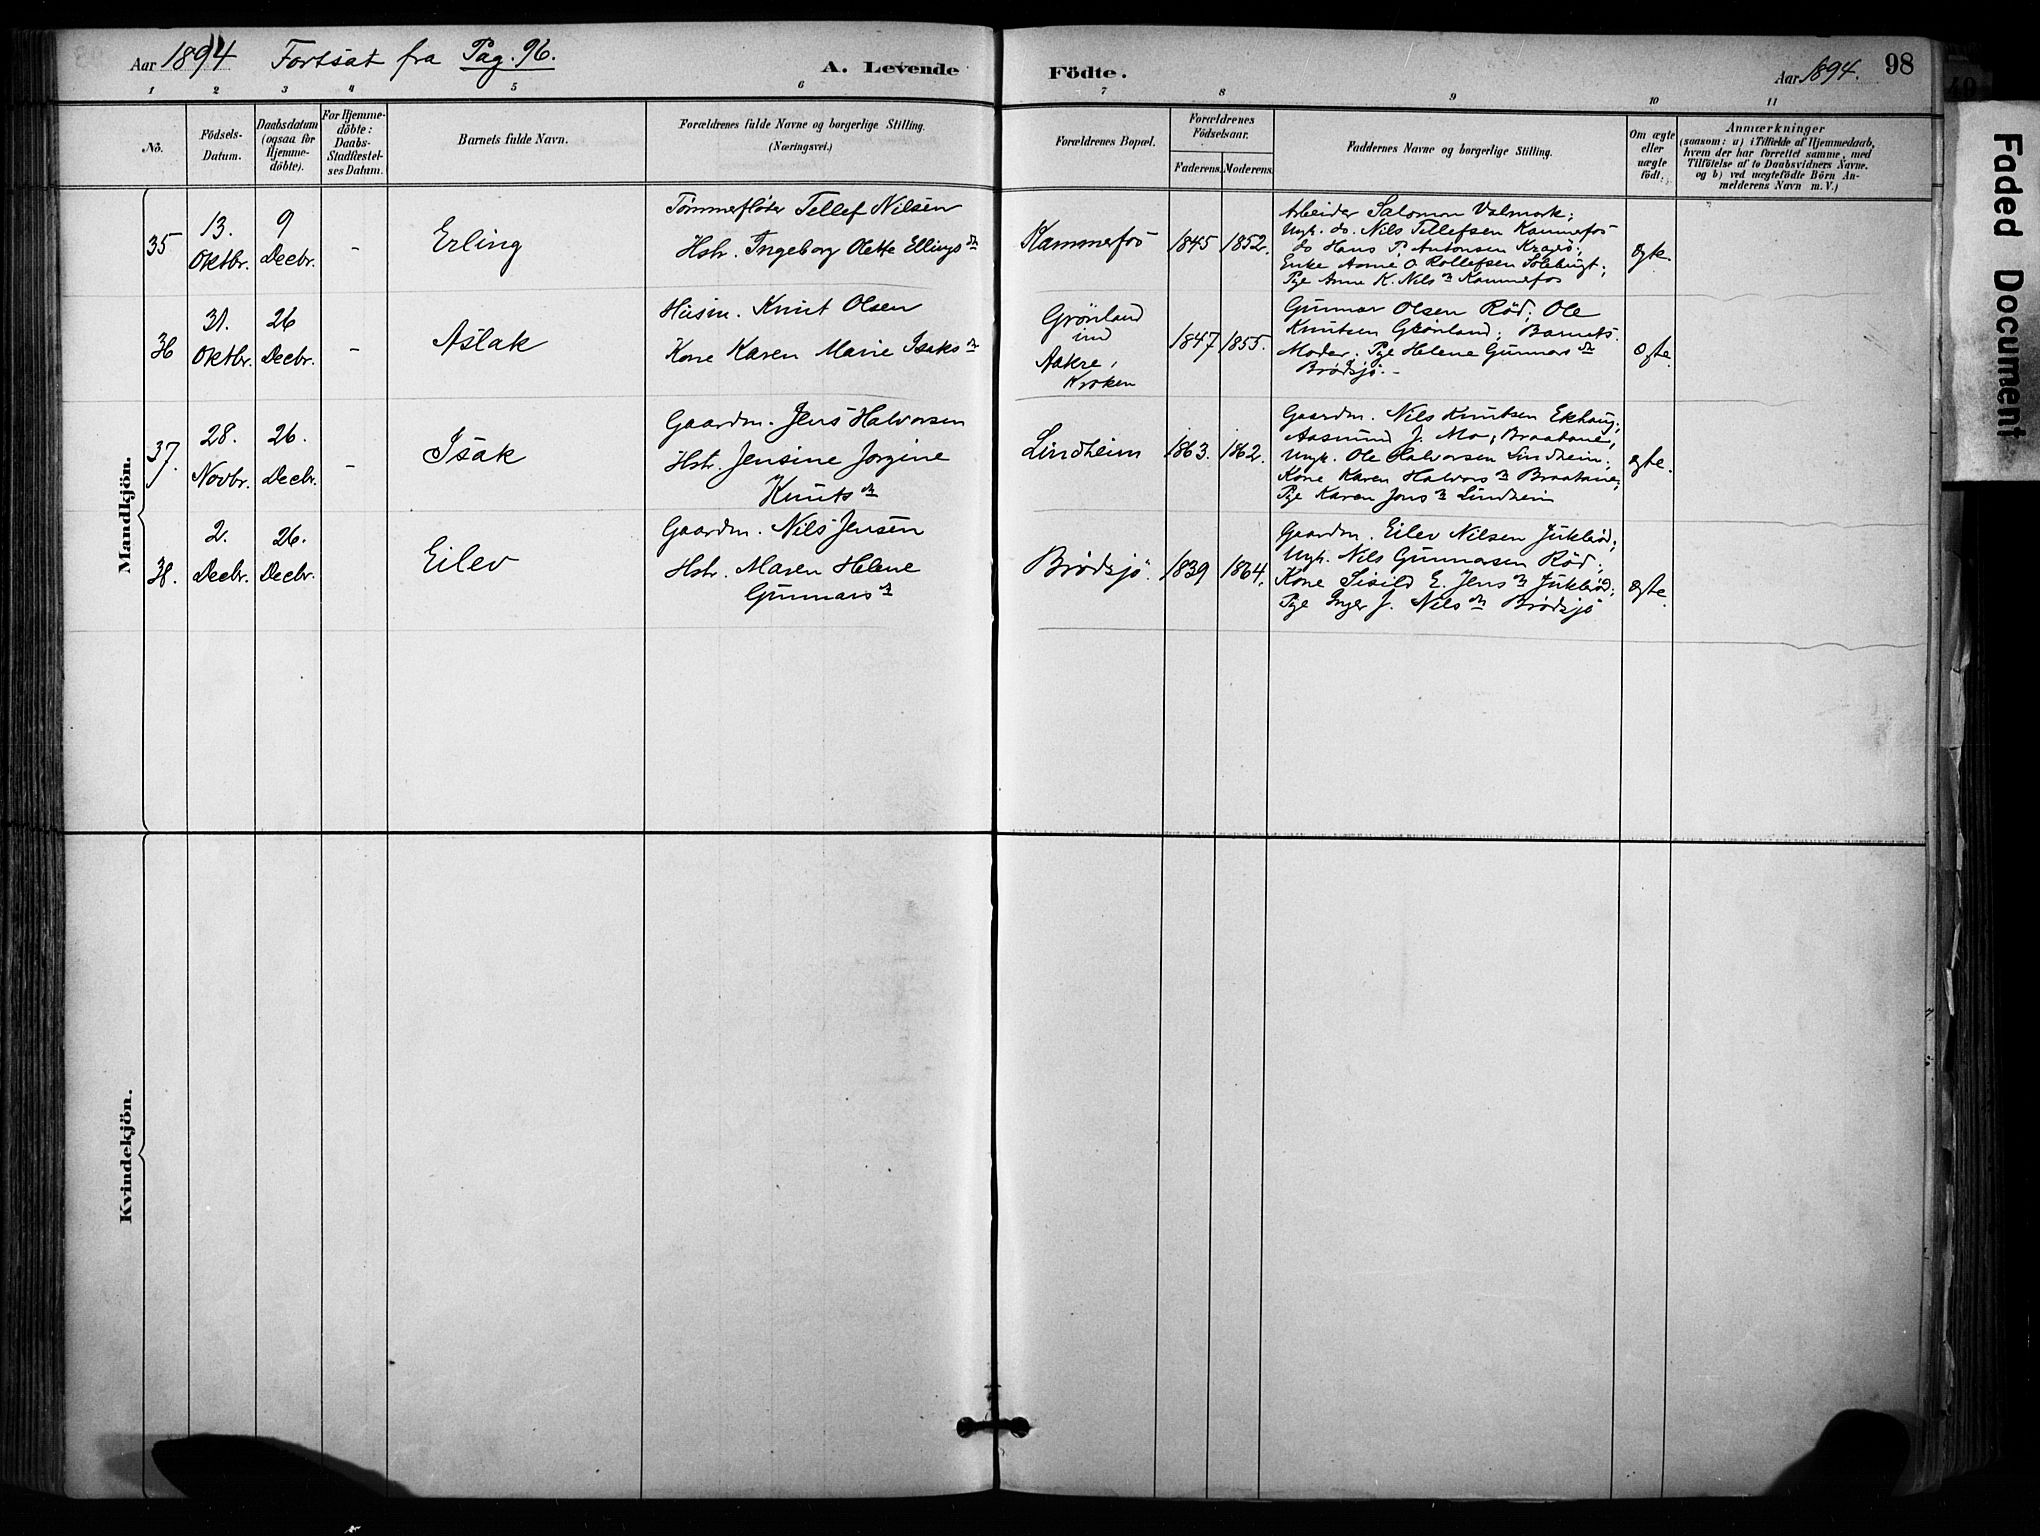 Aar 1894 Fortsat fra Pag. 96. A. Levende Födte. Aar 1894. 98
1 2 3 4 5 6 7 8 9 10 11
No.
Födsels-
Datum.
Daabsdatum
(ogsaa for
Hjemme-
döbte).
For Hjemme-
döbte:
Daabs-
Stadfæstel-
ses Datum.
Barnets fulde Navn.
Forældrenes fulde Navne og borgerlige Stilling.
(Næringsvei.)
Forældrenes Bopæl.
Forældrenes
Födselsaar.
Faderens. Moderens.
Faddernes Navne og borgerlige Stilling.
Om ægte
eller
uægte
födt.
Anmærkninger
(saasom: a) i Tilfælde af Hjemmedaab,
hvem der har forrettet samme, med
Tilföielse af to Daabsvidners Navne.
og b) ved uægtefödte Börn An-
melderens Navn m. V.)
Mandkjön.
35
13.
Oktbr.
9
Decbr.
-
Erling
Tømmerfløter Tellef Nilsen
Hstr. Ingeborg Olette Ellingsdr
Kammerfos
1845 1852.
Arbeider Salomon Valmork;
Ungk. do. Nils Tellefsen Kammerfos
do Hans P. Antonsen Kragerö;
Enke Anne O. Rollefsen
Pige Anne K. Nilsdr Kammerfos
ægte
36
31.
Oktbr.
26
Decbr.
-
Aslak
Husm. Knut Olsen
Kone Karen Marie Isaksdr
Grönland
und
Aakre,
Kroken
1847 1855.
Gunnar Olsen Röd; Ole
Knutsen Grönland; Barnets
Moder; Pige Helene Gunnarsdr
Brödsjö.-
ægte.
37.
28.
Novbr.
26.
Decbr.
-
Isak
Gaardm. Jens Halvorsen
Hstr. Jensine Jorgine
Knutsdr
Lindheim
1863. 1862.
Gaardm. Nils Knutsen Ekhaug;
Aasmund J. Mo; Braatane;
Ungk. Ole Halvorsen Lindheim;
Kone Karen Halvorsdr Braatane;
Pige Karen Jensdr Lindheim
ægte.
38.
2.
Decbr.
26.
Decbr.
-
Eilev
Gaardm. Nils Jensen
Hstr. Maren Helene
Gunnarsdr
Brödsjö.
1839 1864.
Gaardm. Eilev Nilsen Juklöd;
Ungk. Nils Gunnarsen Röd;
Kone Sisild E. Jensdr Juklöd;
Pige Inger J. Nilsdr Brödsjö
ægte.
Kvindekjön.
Faded Document